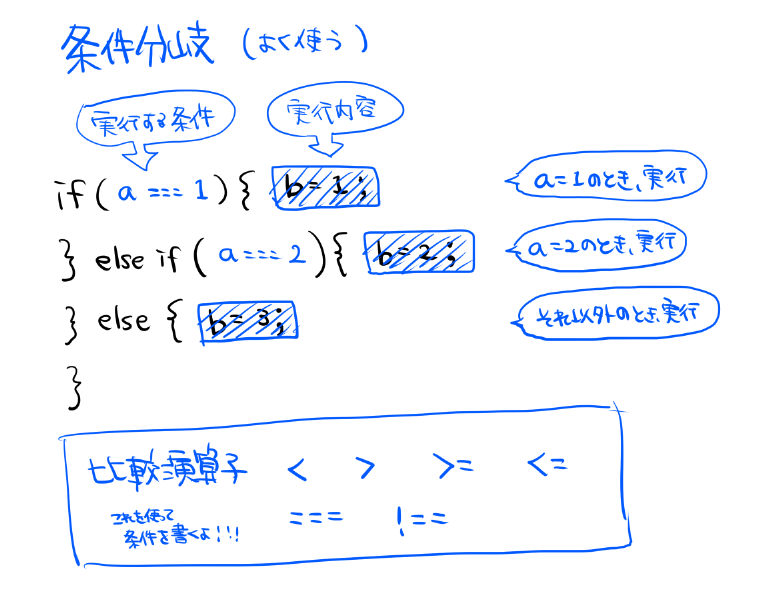 条件分岐 (よく使う)
実行する条件 実行内容
if ( a === 1 ) { b = 1 ; a=1のとき、実行
} else if ( a === 2 ) { b = 2 ; a=2のとき、実行
} else { b = 3 ; それ以外のとき、実行
}
比較演算子 < > >= <=
これを使って === !==
条件を書くよ!!!